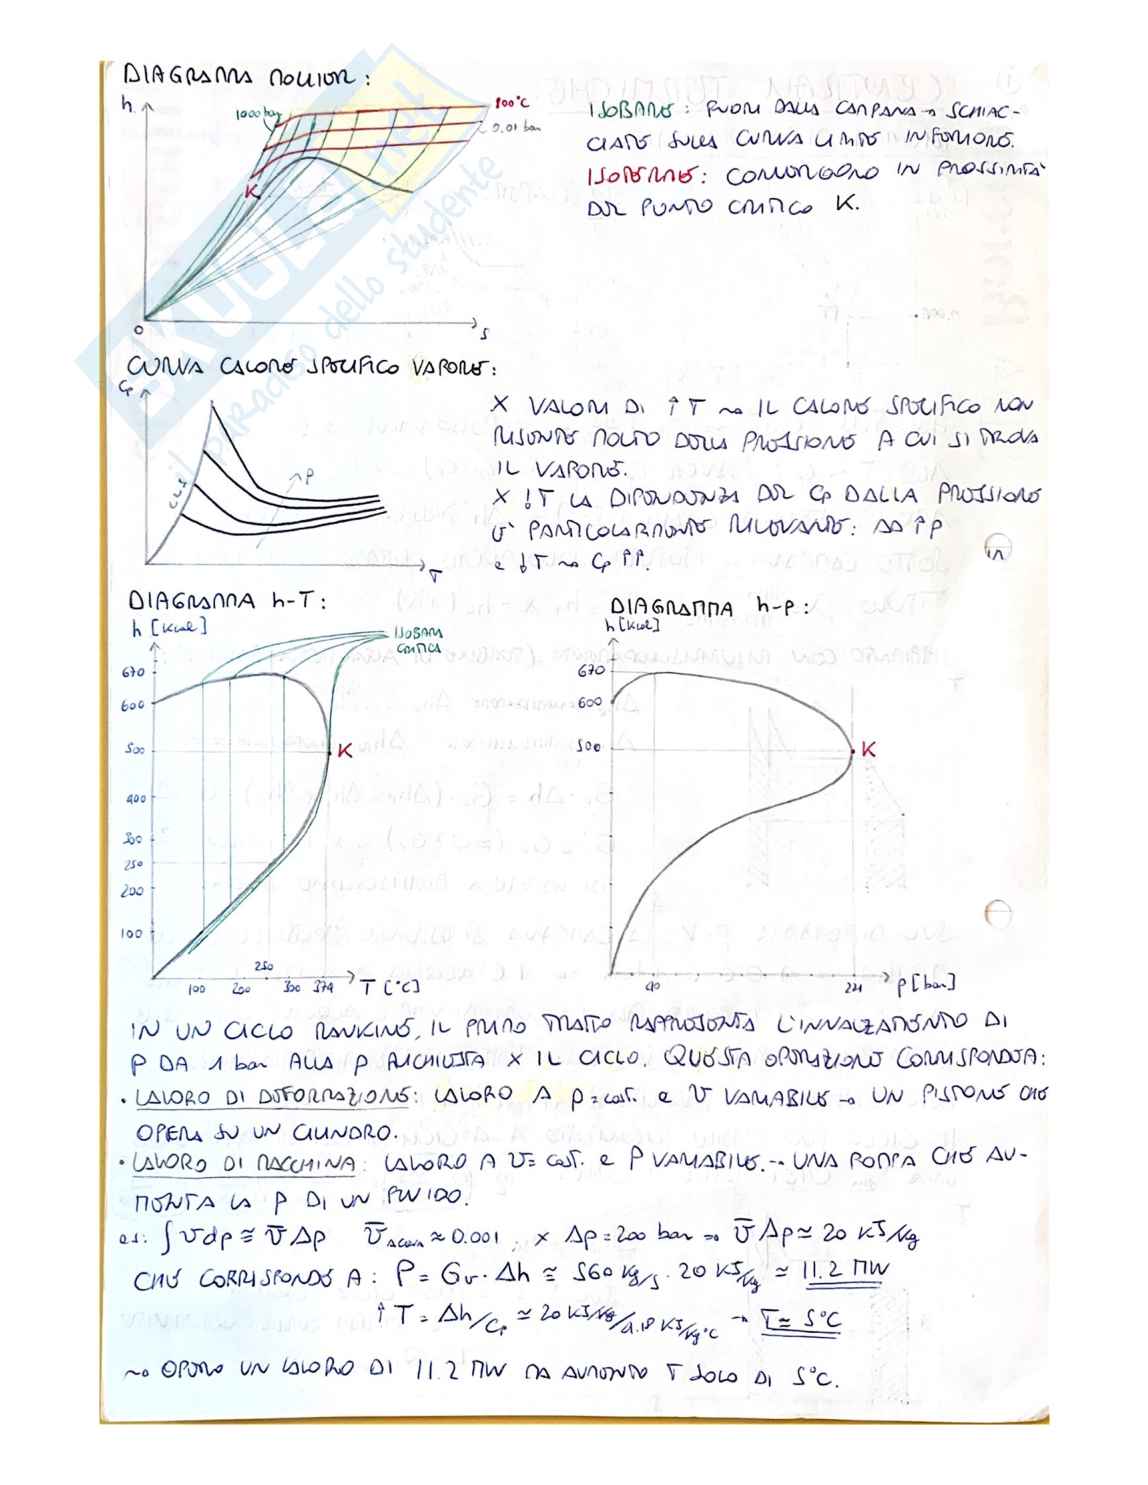 DIAGRAMMA MOLLIER:
h
1000 bar
800°C
0.01 bar
K
0
s
ISOBARE: FUORI DALLA CAMPANA → SCHIAC-
CIATE SULLA CURVA LIMITE INFERIORE.
ISOTERME: CONVERGONO IN PROSSIMITA'
DEL PUNTO CRITICO K.
CURVA CALORE SPECIFICO VAPORE:
Cp
C.L.S
P
T
X VALORI DI ↑T ⇝ IL CALORE SPECIFICO NON
RISENTE MOLTO DELLA PRESSIONE A CUI SI TROVA
IL VAPORE.
X ↓T LA DIPENDENZA DEL Cp DALLA PRESSIONE
E' PARTICOLARMENTE RILEVANTE: AD ↑p
e ↓T ⇝ Cp ↑↑.
DIAGRAMMA h-T:
h [Kcal]
ISOBARA
CRITICA
670
600
500
400
300
250
200
100
K
250
100 200 300 374 T [°C]
DIAGRAMMA h-p:
h [Kcal]
670
600
500
K
40 221 p [bar]
IN UN CICLO RANKINE, IL PRIMO TRATTO RAPPRESENTA L'INNALZAMENTO DI
P DA 1 bar ALLA P RICHIESTA X IL CICLO. QUESTA OPERAZIONE CORRISPONDE A:
• LAVORO DI DEFORMAZIONE: LAVORO A p=cost. e v VARIABILE → UN PISTONE CHE
OPERA SU UN CILINDRO.
• LAVORO DI MACCHINA: LAVORO A v=cost. e P VARIABILE. → UNA POMPA CHE AU-
MENTA LA P DI UN FLUIDO.
es: ∫vdp ≅ v̄ Δp v̄ACQUA ≈ 0.001, x Δp = 200 bar → v̄ Δp ≃ 20 KJ/Kg
CHE CORRISPONDE A: P = Gv · Δh ≅ 560 kg/s · 20 KJ/Kg ≃ 11.2 MW
↑T = Δh/Cp ≃ 20 KJ/Kg/4.18 KJ/Kg°C → T ≃ 5°C
⇝ OPERO UN LAVORO DI 11.2 MW MA AUMENTO T SOLO DI 5°C.
SKUOLA.net
il paradiso dello studente